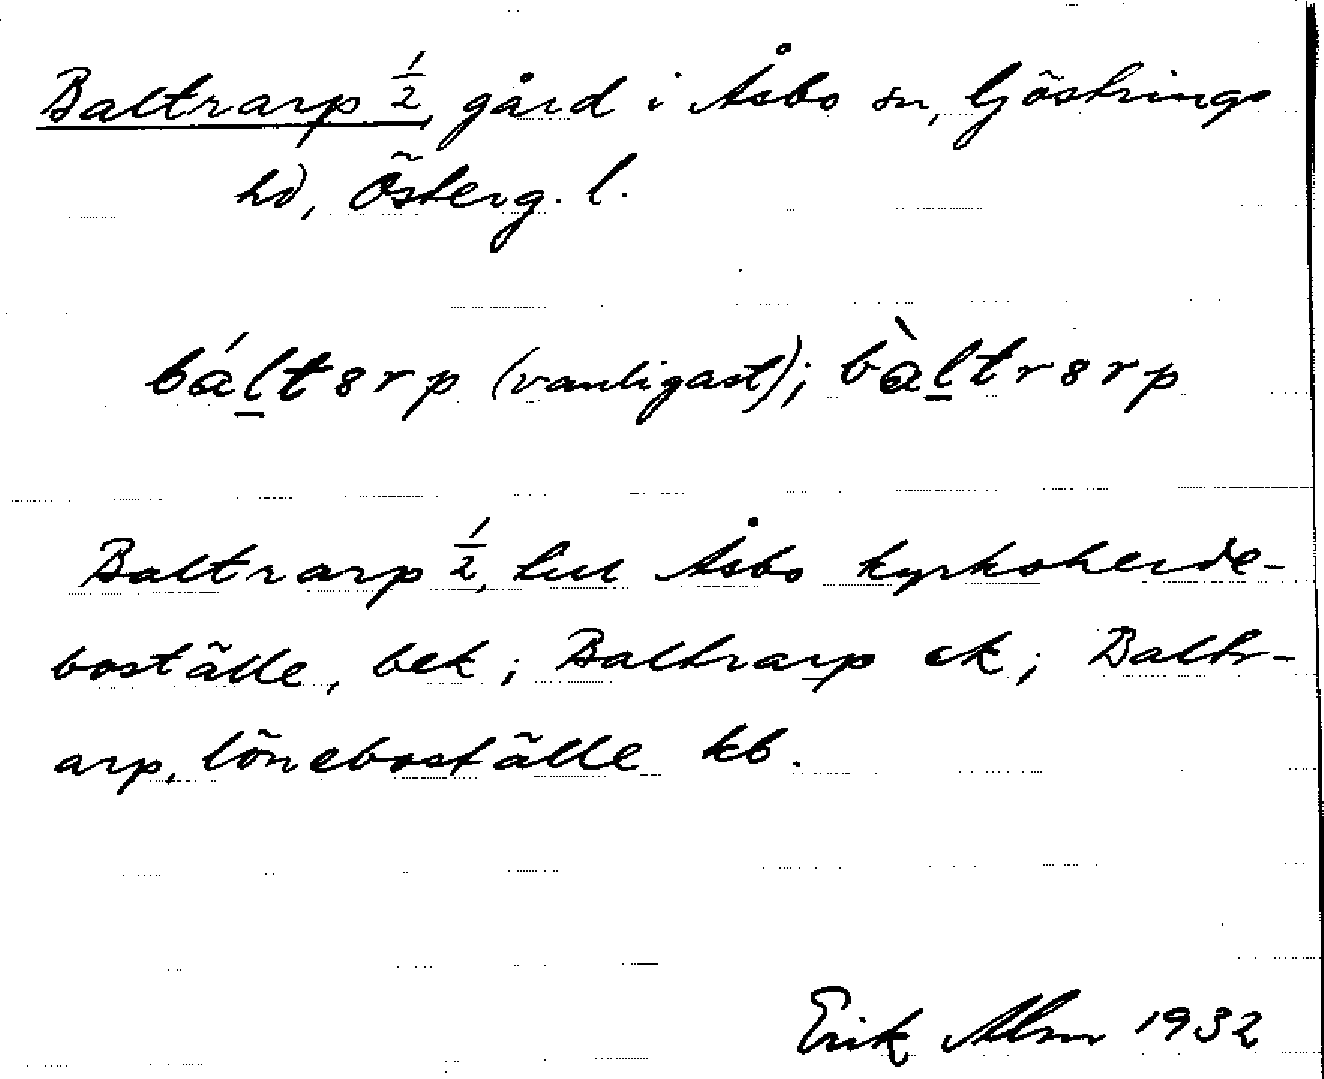 Baltrarp ½, gård i Åsbo sn, Göstrings
hd, Österg. l.
báltsrp (vanligast); bàltrsrp
Baltrarp ½, till Åsbo kyrkoherde-
boställe, bek; Baltrarp ek; Baltr-
arp, löneboställe kb.
Erik Alm 1932